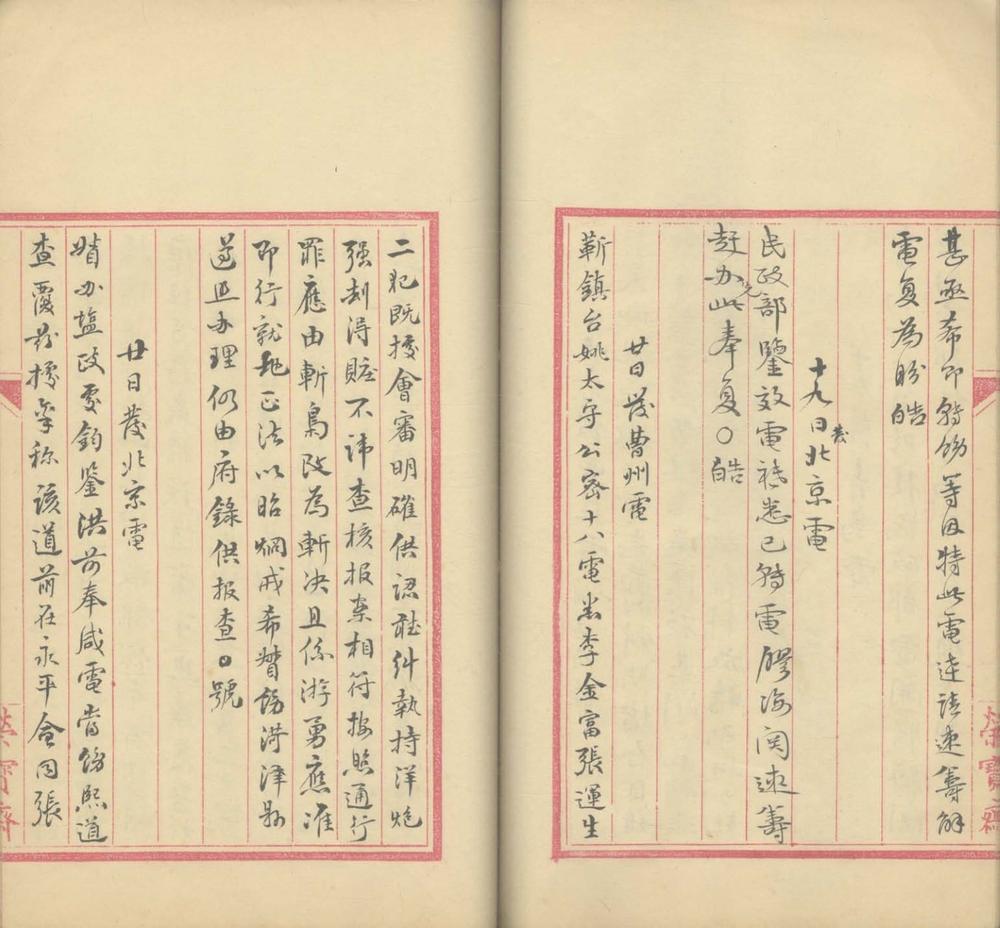 甚亟希即轉飭等因特此電達請速籌解
電复為盼皓
十九日發北京電
民政部鑒效電祗悉已轉電膠海関速籌
趕办先此奉复〇皓
廿日發曹州電
靳鎮台姚太守公密十八電悉李金富張運生
二犯既據會審明確供認敢糾執持洋炮
强刦得賍不諱查核报案相符按照通行
罪應由斬梟改為斬决且係游勇應准
即行就地正法以昭烱戒希督飭菏澤縣
遵照办理仍由府錄供报查〇號
廿日發北京電
督办塩政處鈞鑒洪前奉咸電當飭熙道
查覆茲據稟称該道前在永平會同張
榮寶齋
榮寶齋